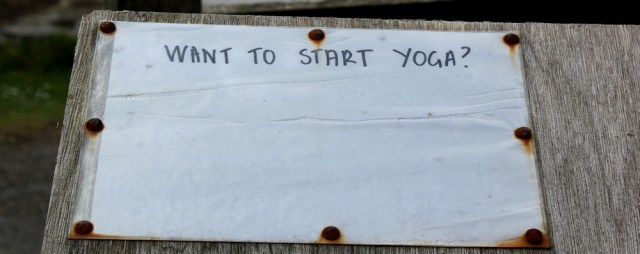 WANT TO START YOGA?